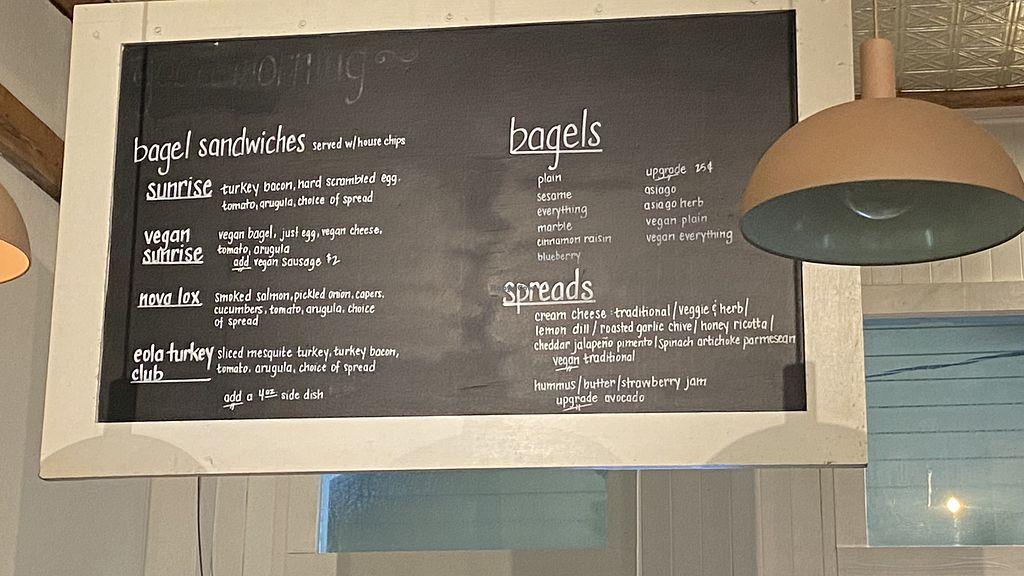 good morning~
bagel sandwiches served w/house chips
sunrise turkey bacon, hard scrambled egg,
tomato, arugula, choice of spread
vegan vegan bagel, just egg, vegan cheese,
sunrise tomato, arugula
add vegan sausage $2
nova lox smoked salmon, pickled onion, capers,
cucumbers, tomato, arugula, choice
of spread
eola turkey sliced mesquite turkey, turkey bacon,
club tomato, arugula, choice of spread
add a 4oz side dish
bagels
plain
sesame
everything
marble
cinnamon raisin
blueberry
upgrade 25¢
asiago
asiago herb
vegan plain
vegan everything
spreads
cream cheese: traditional/veggie & herb/
lemon dill/roasted garlic chive/honey ricotta/
cheddar jalapeño pimento/spinach artichoke parmesean
vegan traditional
hummus/butter/strawberry jam
upgrade avocado